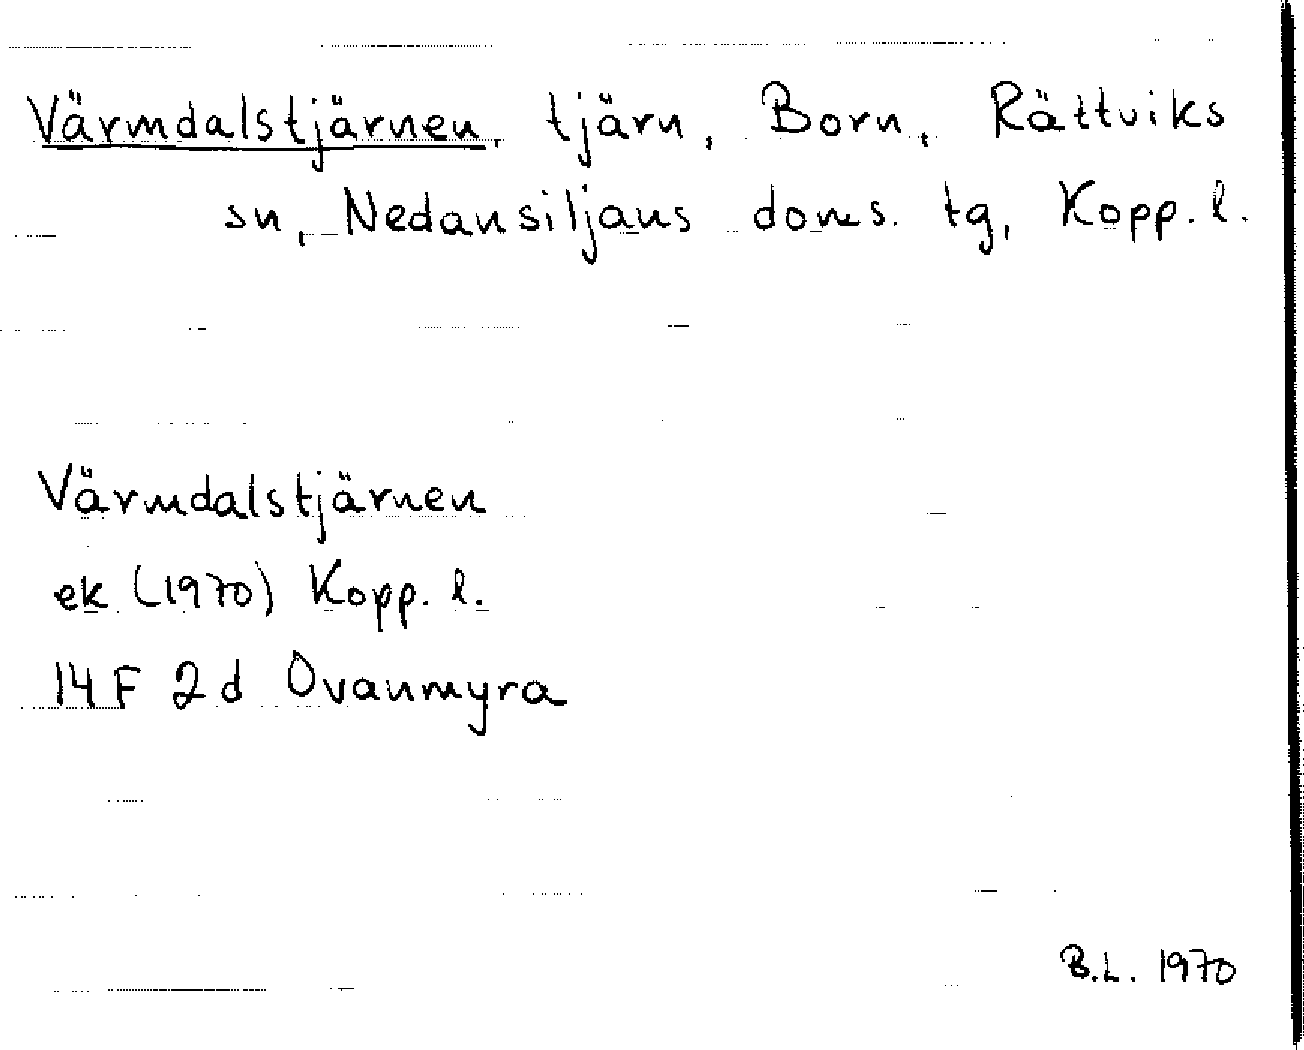 Värmdalstjärnen, tjärn, Born, Rättviks
sn, Nedansiljans doms. tg, Kopp. l.
Värmdalstjärnen
ek (1970) Kopp. l.
14 F 2 d Ovanmyra
B.L. 1970